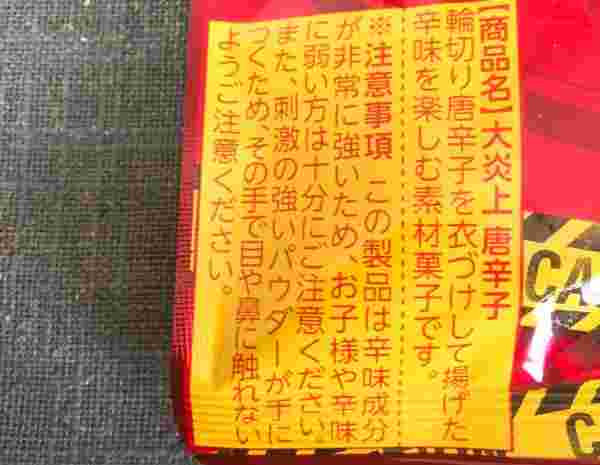 【商品名】大炎上 唐辛子
輪切り唐辛子を衣づけして揚げた
辛味を楽しむ素材菓子です。
※注意事項 この製品は辛味成分
が非常に強いため、お子様や辛味
に弱い方は十分にご注意ください。
また、刺激の強いパウダーが手に
つくため、その手で目や鼻に触れない
ようご注意ください。
CA
C